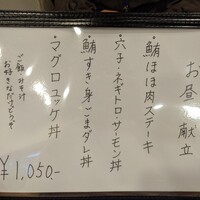 お昼の献立
・鮪ほほ肉ステーキ
・穴子・ネギトロ・サーモン丼
・鮪すき身ごまダレ丼
・マグロユッケ丼
ご飯 みそ汁
お好きなだけどうぞ
¥1,050.-